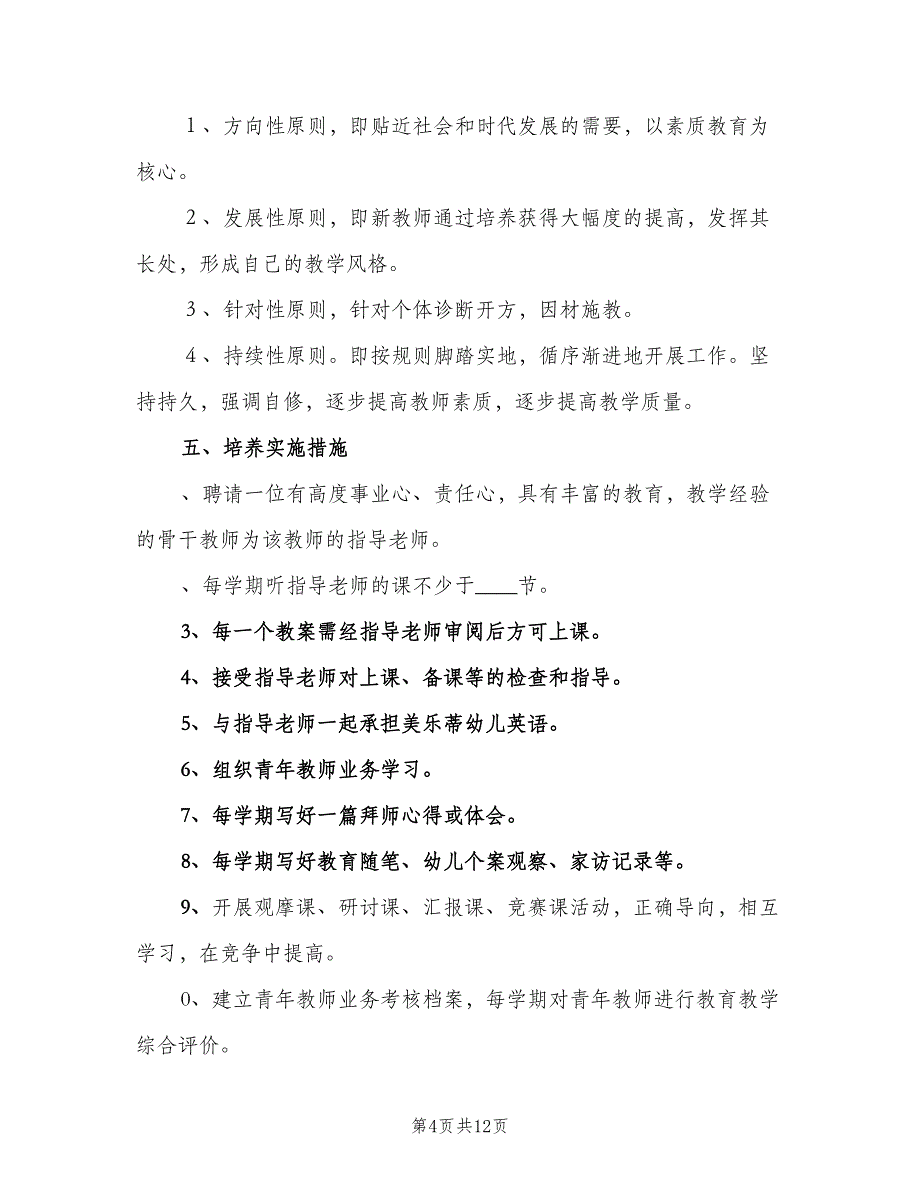 1、方向性原则，即贴近社会和时代发展的需要，以素质教育为
核心。
2、发展性原则，即新教师通过培养获得大幅度的提高，发挥其
长处，形成自己的教学风格。
3、针对性原则，针对个体诊断开方，因材施教。
4、持续性原则。即按规则脚踏实地，循序渐进地开展工作。坚
持持久，强调自修，逐步提高教师素质，逐步提高教学质量。
五、培养实施措施
、聘请一位有高度事业心、责任心，具有丰富的教育，教学经验
的骨干教师为该教师的指导老师。
、每学期听指导老师的课不少于____节。
3、每一个教案需经指导老师审阅后方可上课。
4、接受指导老师对上课、备课等的检查和指导。
5、与指导老师一起承担美乐蒂幼儿英语。
6、组织青年教师业务学习。
7、每学期写好一篇拜师心得或体会。
8、每学期写好教育随笔、幼儿个案观察、家访记录等。
9、开展观摩课、研讨课、汇报课、竞赛课活动，正确导向，相互
学习，在竞争中提高。
0、建立青年教师业务考核档案，每学期对青年教师进行教育教学
综合评价。
第4页共12页